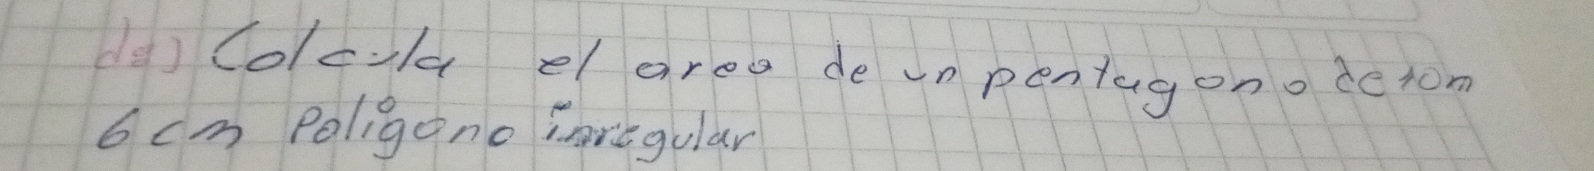 Colcula el area de un pentagono de 10m
6cm Poligono inregular